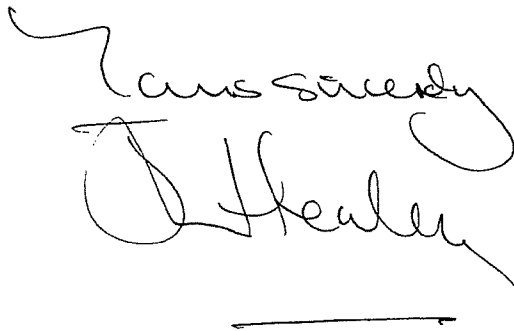 Yours sincerely
J Healey